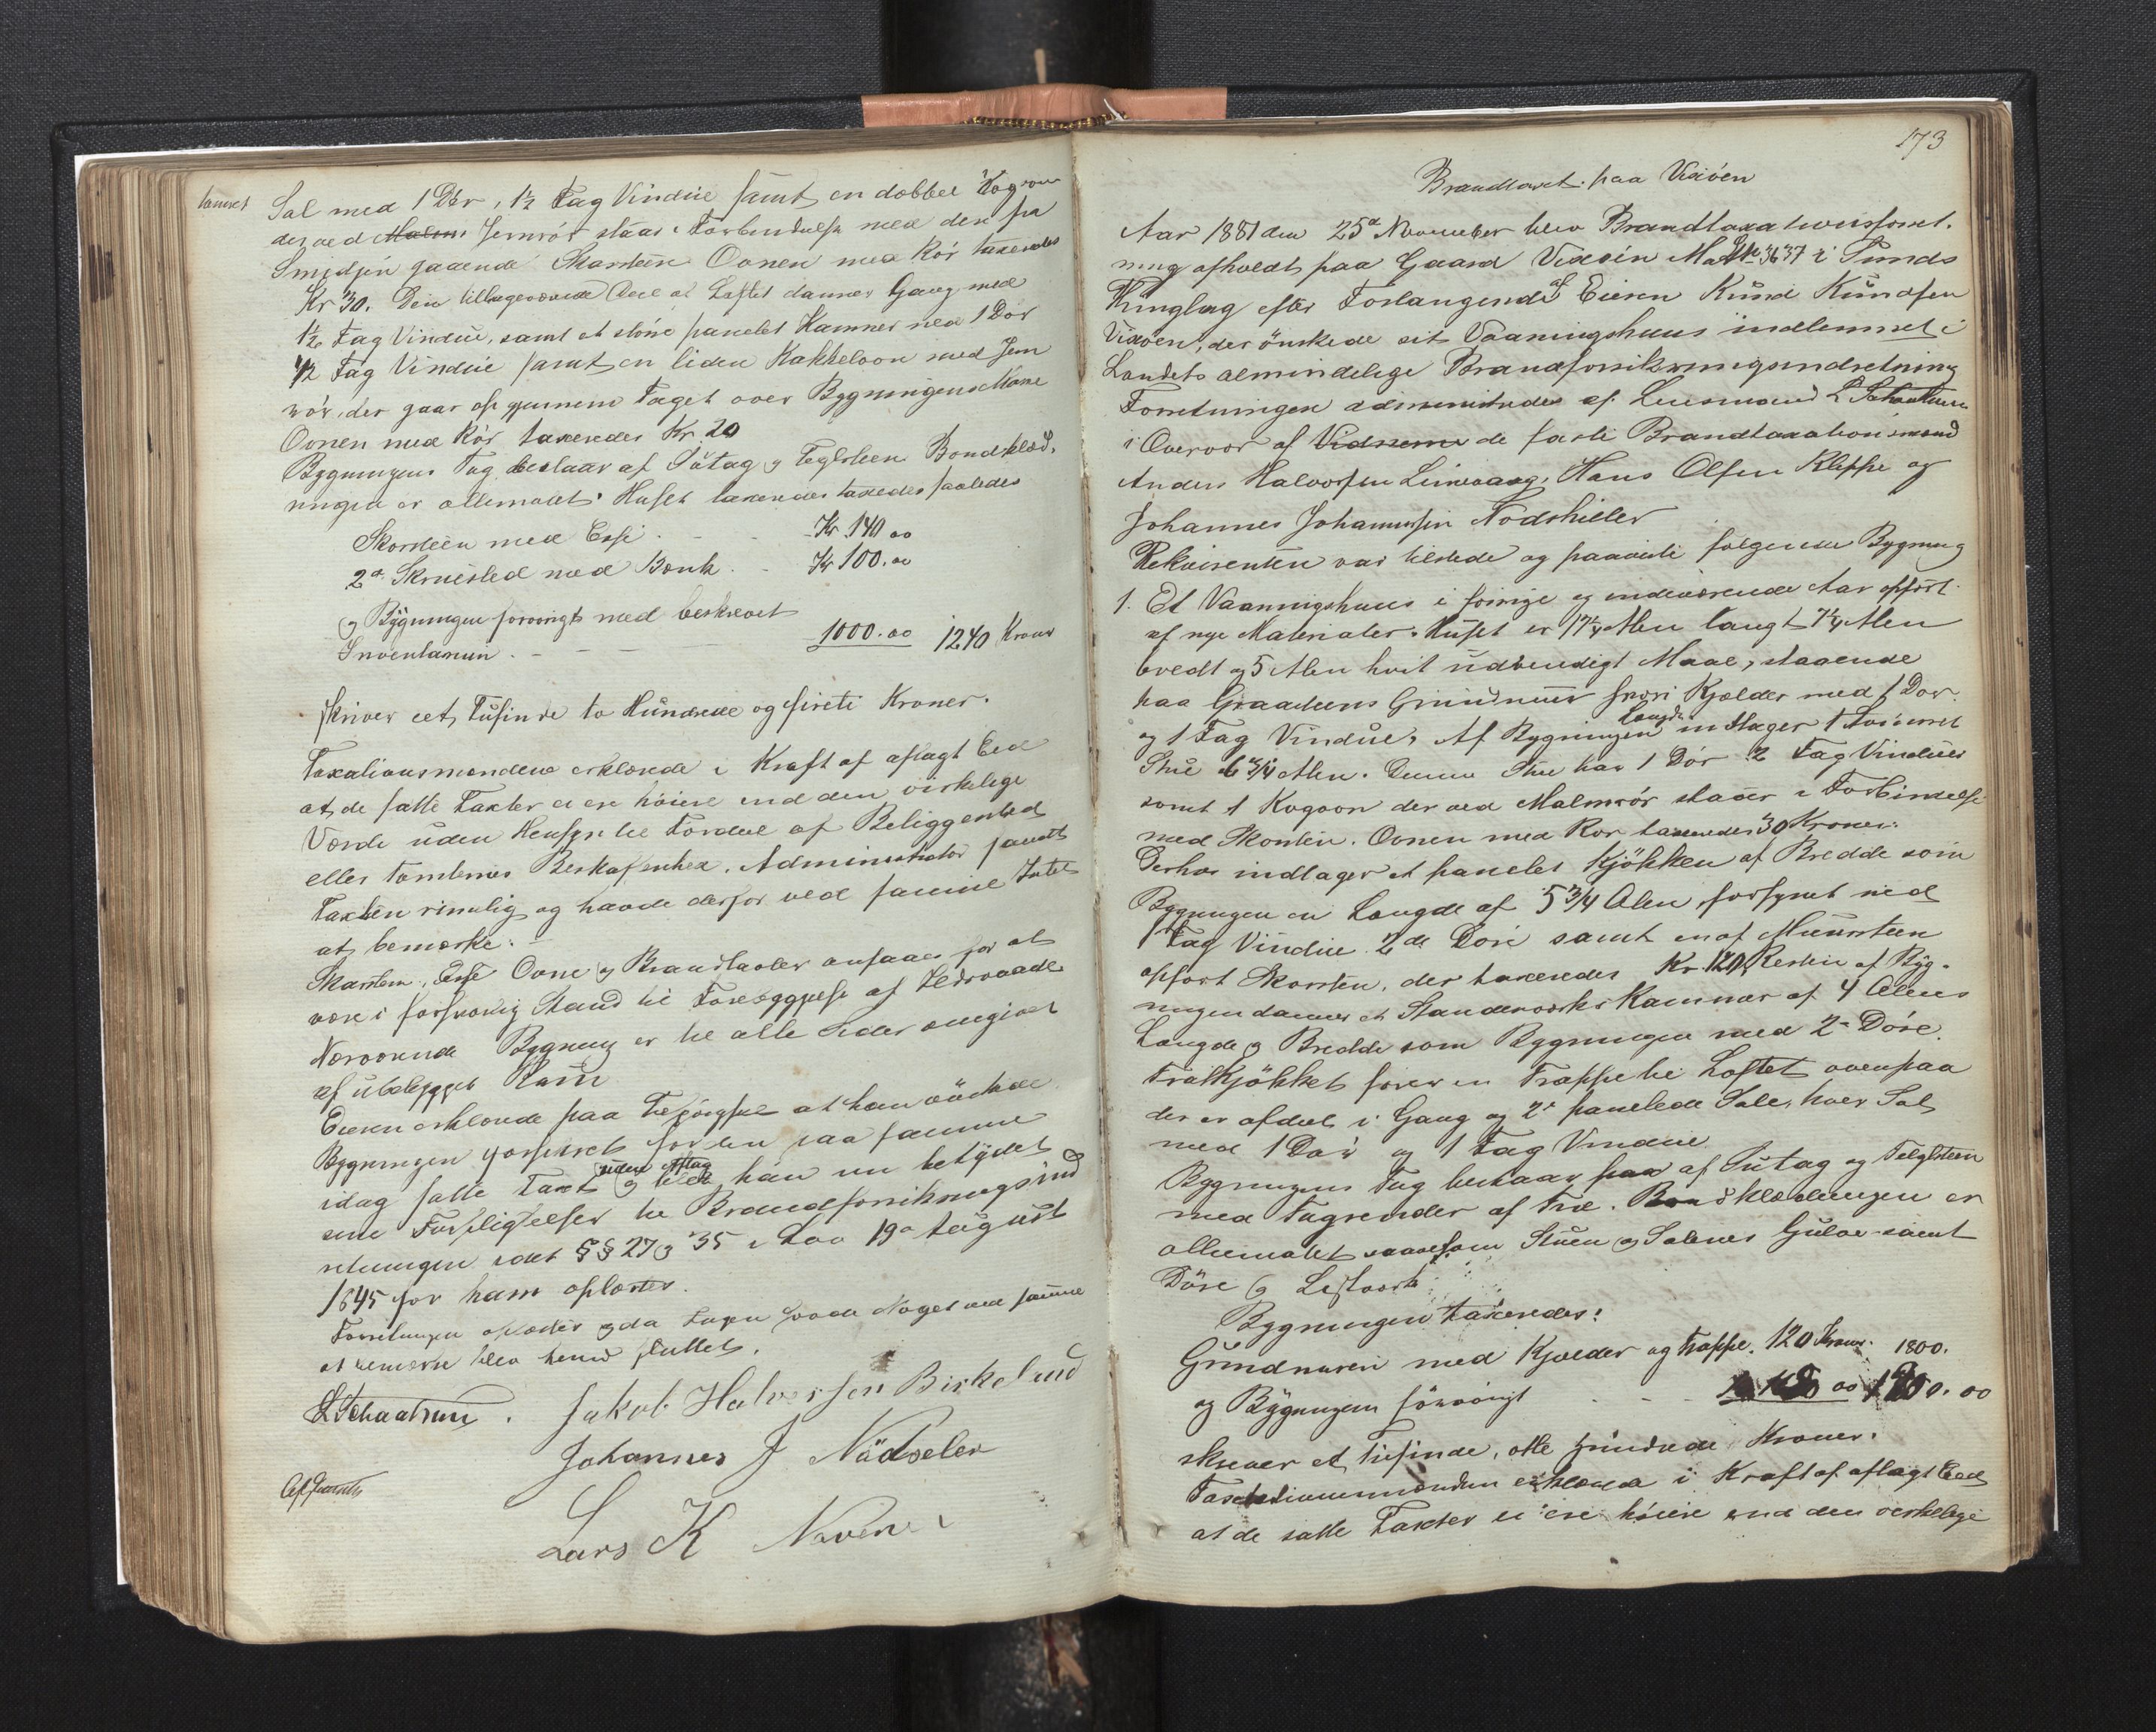 tømret Sal med 1 Dør, 1½ Fag Vindue samt en dobbel Kogovn
der ved Jernrör staar i Forbindelse med den fra
Smedjen gaaende Skorsteen Ovnen med Rör taxeredes
Kr 30. Den tilbageværende Deel af Loftet danner Gang med
1½ Fag Vindue, samt et større panelet Kammer med 1 Dör
1/2 Fag Vindue samt en liden Kakkelovn med Jern
rör, der gaar op gjennem Taget over Bygningens Möne
Ovnen med Rör taxeredes Kr 20
Bygningens Tag bestaar af Sutag og Teglsteen Bordklæd-
ningen er oliemalet. Huset taxeredes saaledes
Skorsteen med Esse . - - Kr. 140 00
2de Skruested med Bænk . - Kr 100. 00
og Bygningen forövrigt med beskrevet
Inventarium . - - - - 1000.00 1240 Kroner
skriver eet Tusinde to Hundrede og fireti Kroner.
Taxationsmændene erklærede i Kraft af aflagt Eed
at de satte Taxter ei ere höiere end den virkelige
Værdi uden Hensyn til Fordeel af Beliggenhed
eller Tomternes Beskafenhed. Administrator fandt
Taxten rimelig og havde derfor ved samme Intet
at bemærke. -
Skorsten, Esse Ovne og Brandtavler ansaaes for at
være i forsvarlig Stand til Forebyggelse af Ildsvaade
Nærværende Bygning er til alle Sider omgivet
af ubebygget Rum
Eieren erklærede paa Tilspörgsel at han önskede
Bygningen forsikret for den paa samme
idag satte Taxt uden Aftag og blev han nu betydet
sine Forpligtelser til Brandforsikringsind
retningen samt §§ 27 og 35 i Lov 19de August
1845 for ham oplæstes.
Forretningen oplæstes og da Ingen havde Noget ved samme
at bemærke blev hermed sluttet.
L Schaatun . Jakob Halversen Birkelund
Johannes J Nödseler
Lars K
173
Brandtaxt paa Vixöen
Aar 1881 den 25de November blev Brandtaxationsforret-
ning afholdt paa Gaard Vixöen Mat No 36 37 i Sunds
Thinglag efter Forlangende af Eieren Knud Knudsen
Vixöen, der önskede sit Vaaningshuus indlemmet i
Landets almindelige Brandforsikringsindretning
Forretningen administredes af Lensmand L Schaatun
i Overvær af de faste Brandtaxationsmænd
Anders Halvorsen Linvaag, Hans Olsen Kleppe og
Johannes Johannessen Nodskiller
Rekvirenten var tilstede og paaviste fölgende Bygning
1. Et Vaaningshuus i forrige og indeværende Aar opfört
af nye Materialer. Huset er 17¼ Alen langt 7¼ Alen
bredt og 5 Alen höit udvendigt Maal, staaende
paa Graasteens Grundmuur hvori Kjælder med 1 Dör
og 1 Fag Vindue. Af Bygningens Længde indtager 1 tömret
Stue 6¾ Alen. Denne Stue har 1 Dör 2 Fag Vinduer
samt 1 Kogovn der ved Malmrör staaer i Forbindelse
med Skorsten. Ovnen med Rör taxeredes 30 Kroner.
Derhos indtager et panelet Kjökken af Bredde som
Bygningen en Længde af 5¾ Alen, forsynet med
1 Fag Vindue 2de Döre samt en af Muursteen
opfört Skorsten, der taxeredes Kr. 120. Resten af Byg-
ningen danner et Standerværks Kammer af 4 Alens
Længde og Bredde som Bygningen med 2 Döre.
Fra Kjökket förer en Trappe til Loftet ovenpaa
der er afdeelt i Gang og 2de panelede Sale, hver Sal
med 1 Dör og 1 Fag Vindue
Bygningens Tag bestaar af Sutag og Teglsteen
med Tagrender af Træ. Bordklædningen er
oliemalet saavelsom Stuens og Salenes Gulve samt
Döre og Listværk
Bygningen taxeredes:
Grundmuren med Kjælder og Trappe. 120 Kroner. 1800.
og Bygningen forövrigt - - 00 1800. 00
skriver et tusinde, otte hundrede Kroner.
Taxationsmændene erklærede i Kraft af aflagt Eed
at de satte Taxter ei ere höiere end den virkelige